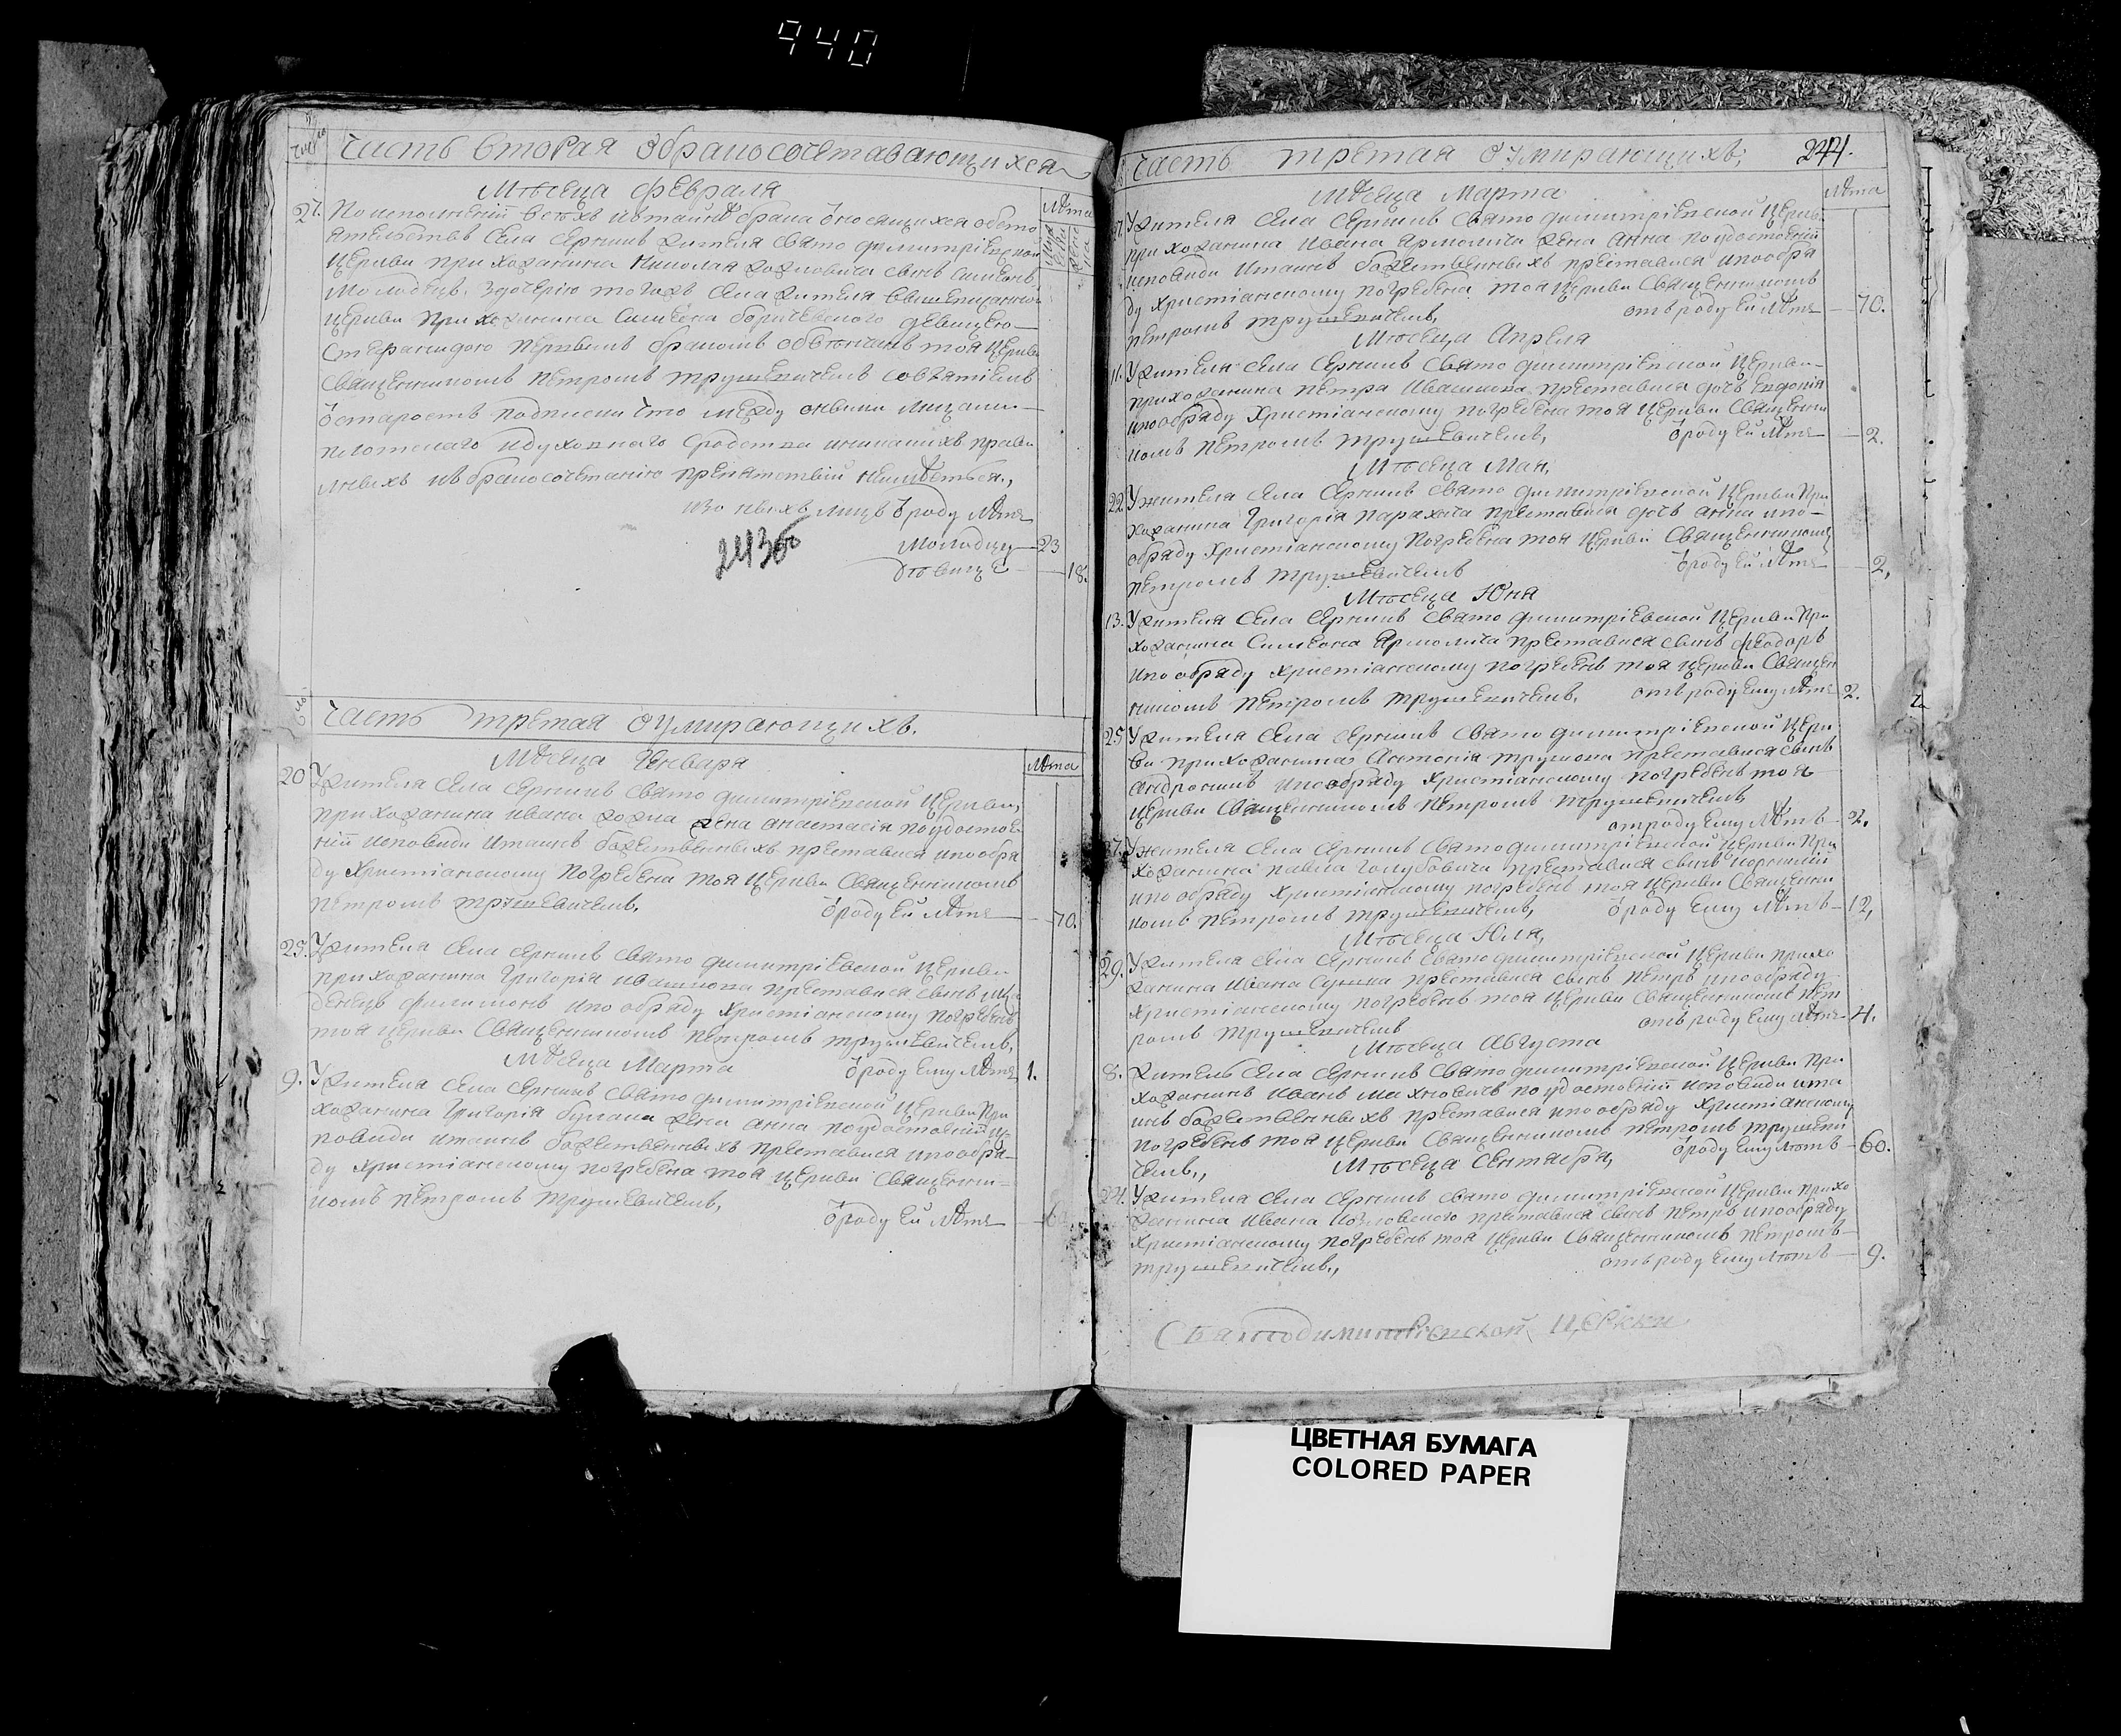 940
Часть вторая обракосочетавающихся
Число
Мѣсяца Февраля
Лѣта
27. По исполненіи всѣхъ
ятельствъ села Серникъ жителя Свято Димитріевской
Церкви прихожанина Николая сынъ Симеонъ
Молодецъ, здочерію тогожъ села жителя вышеписанной
Церкви прихожанина Симеона девицею
первымъ бракомъ обвенчанъ тоя Церкви
Священникомъ Петромъ Трушевичемъ совзятіемъ
подписки что между оными лицами
плотскаго идуховнаго сродства
къ бракосочетанію препятствій неимѣется,
лицъ ѿроду лѣтъ
молодцу 23
243об
девице 18.
Часть третая оумирающихъ.
Мѣсяца Генваря
Лѣта
20 Ужителя села Серникъ Свято Димитріевской Церкви,
прихожанина Ивана жена Анастасія поудостое
ніи исповеди итаинъ божественныхъ преставися ипообря
ду Христіанскому погребена тоя Церкви Священникомъ
Петромъ Трушевичемъ, ѿроду ей лѣтъ 70.
25. Ужителя села Серникъ Свято Димитріевской Церкви
прихожанина Григорія Ивашкова преставися сынъ мла
денецъ Филимонъ ипо обряду Христіанскому погребенъ
тоя Церкви Священникомъ Петромъ Трушевичемъ,
Мѣсяца Марта ѿроду ему лѣтъ 1.
9. Ужителя села Серникъ Свято Димитріевской Церкви при
хожанина Григорія жена Анна поудостоеніи ис
поведи итаинъ божественныхъ преставися ипообря
ду Христіанскому погребена тоя Церкви Священни
комъ Петромъ Трушевичемъ, ѿроду ей лѣтъ
Часть третая оумирающихъ; 244.
Мѣсяца Марта
Лѣта
Ужителя села Серникъ Свято Димитріевской Церкви
прихожанина Ивана Ярмолича жена Анна поудостоеніи
исповеди итаинъ божественныхъ преставися ипообря
ду Христіанскому погребена тоя Церкви Священникомъ
Петромъ Трушевичемъ, отъроду ей лѣтъ 70.
Мѣсяца Апреля
11. Ужителя села Серникъ Свято Димитріевской Церкви
прихожанина Петра Ивашкова преставися дочъ Евдокія
ипообряду Христіанскому погребена тоя Церкви Священни
комъ Петромъ Трушевичемъ, ѿроду ей лѣтъ 2.
Мѣсяца Мая,
22. Ужителя села Серникъ Свято Димитріевской Церкви при
хожанина Григорія преставися дочъ Анна ипо
обряду Христіанскому погребена тоя Церкви Священникомъ
Петромъ Трушевичемъ ѿроду ей лѣтъ 2,
Мѣсяца Юня
13. Ужителя села Серникъ Свято Димитріевской Церкви при
хожанина Симеона Ярмолича преставися сынъ Феодоръ
ипо обряду Христіанскому погребенъ тоя Церкви Священ
никомъ Петромъ Трушевичемъ, отъроду ему лѣтъ 2.
25 Ужителя села Серникъ Свято Димитріевской Церк
ви прихожанина Антонія преставися сынъ
ипообряду Христіанскому погребенъ тоя
Церкви Священникомъ Петромъ Трушевичемъ
отроду ему лѣтъ 2.
Ужителя села Серникъ Свято Димитріевской Церкви при
хожанина Павла Голубовича преставися сынъ Корнилій
ипо обряду Христіанскому погребенъ тоя Церкви Священни
комъ Петромъ Трушевичемъ, ѿроду ему лѣтъ 12,
Мѣсяца Юля,
29. Ужителя села Серникъ Свято Димитріевской Церкви прихо
жанина Ивана преставися сынъ Петръ ипообряду
Христіанскому погребенъ тоя Церкви Священникомъ Пет
ромъ Трушевичемъ отъроду ему лѣтъ 4.
Мѣсяца Августа
8. Житель села Серникъ Свято Димитріевской Церкви при
хожанинъ Иванъ Махновичъ поудостоеніи исповеди ита
инъ божественныхъ преставися ипо обряду Христіанскому
погребенъ тоя Церкви Священникомъ Петромъ Трушеви
чемъ, ѿроду ему лѣтъ 60.
Мѣсяца Сентября,
Ужителя села Серникъ Свято Димитріевской Церкви прихо
жанина Ивана преставися сынъ Петръ ипообряду
Христіанскому погребенъ тоя Церкви Священникомъ Петромъ
Трушевичемъ, отъроду ему лѣтъ 9.
Святодимитріевской Церкви
ЦВЕТНАЯ БУМАГА
COLORED PAPER